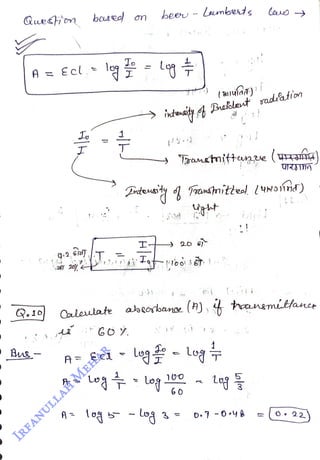 Question based on beer - Lumberts law →
A = Ecl = log Io/I = log 1/T
(आपतित)
→ intensity of Incident radiation
Io/I = 1/T
→ Transmittance (
पारगमन
Intensity of Transmitted
light
T = I/Io → 20 से
→ 100 से
Q.10 Calculate absorbance (A), if transmittance
is 60 %.
Ans - A = Ecl = log Io/I = log 1/T
A = Log 1/T = log 100/60 = log 5/3
A = log 5 - log 3 = 0.7 - 0.48 = 0.22
IRFANULLAH MEHAR